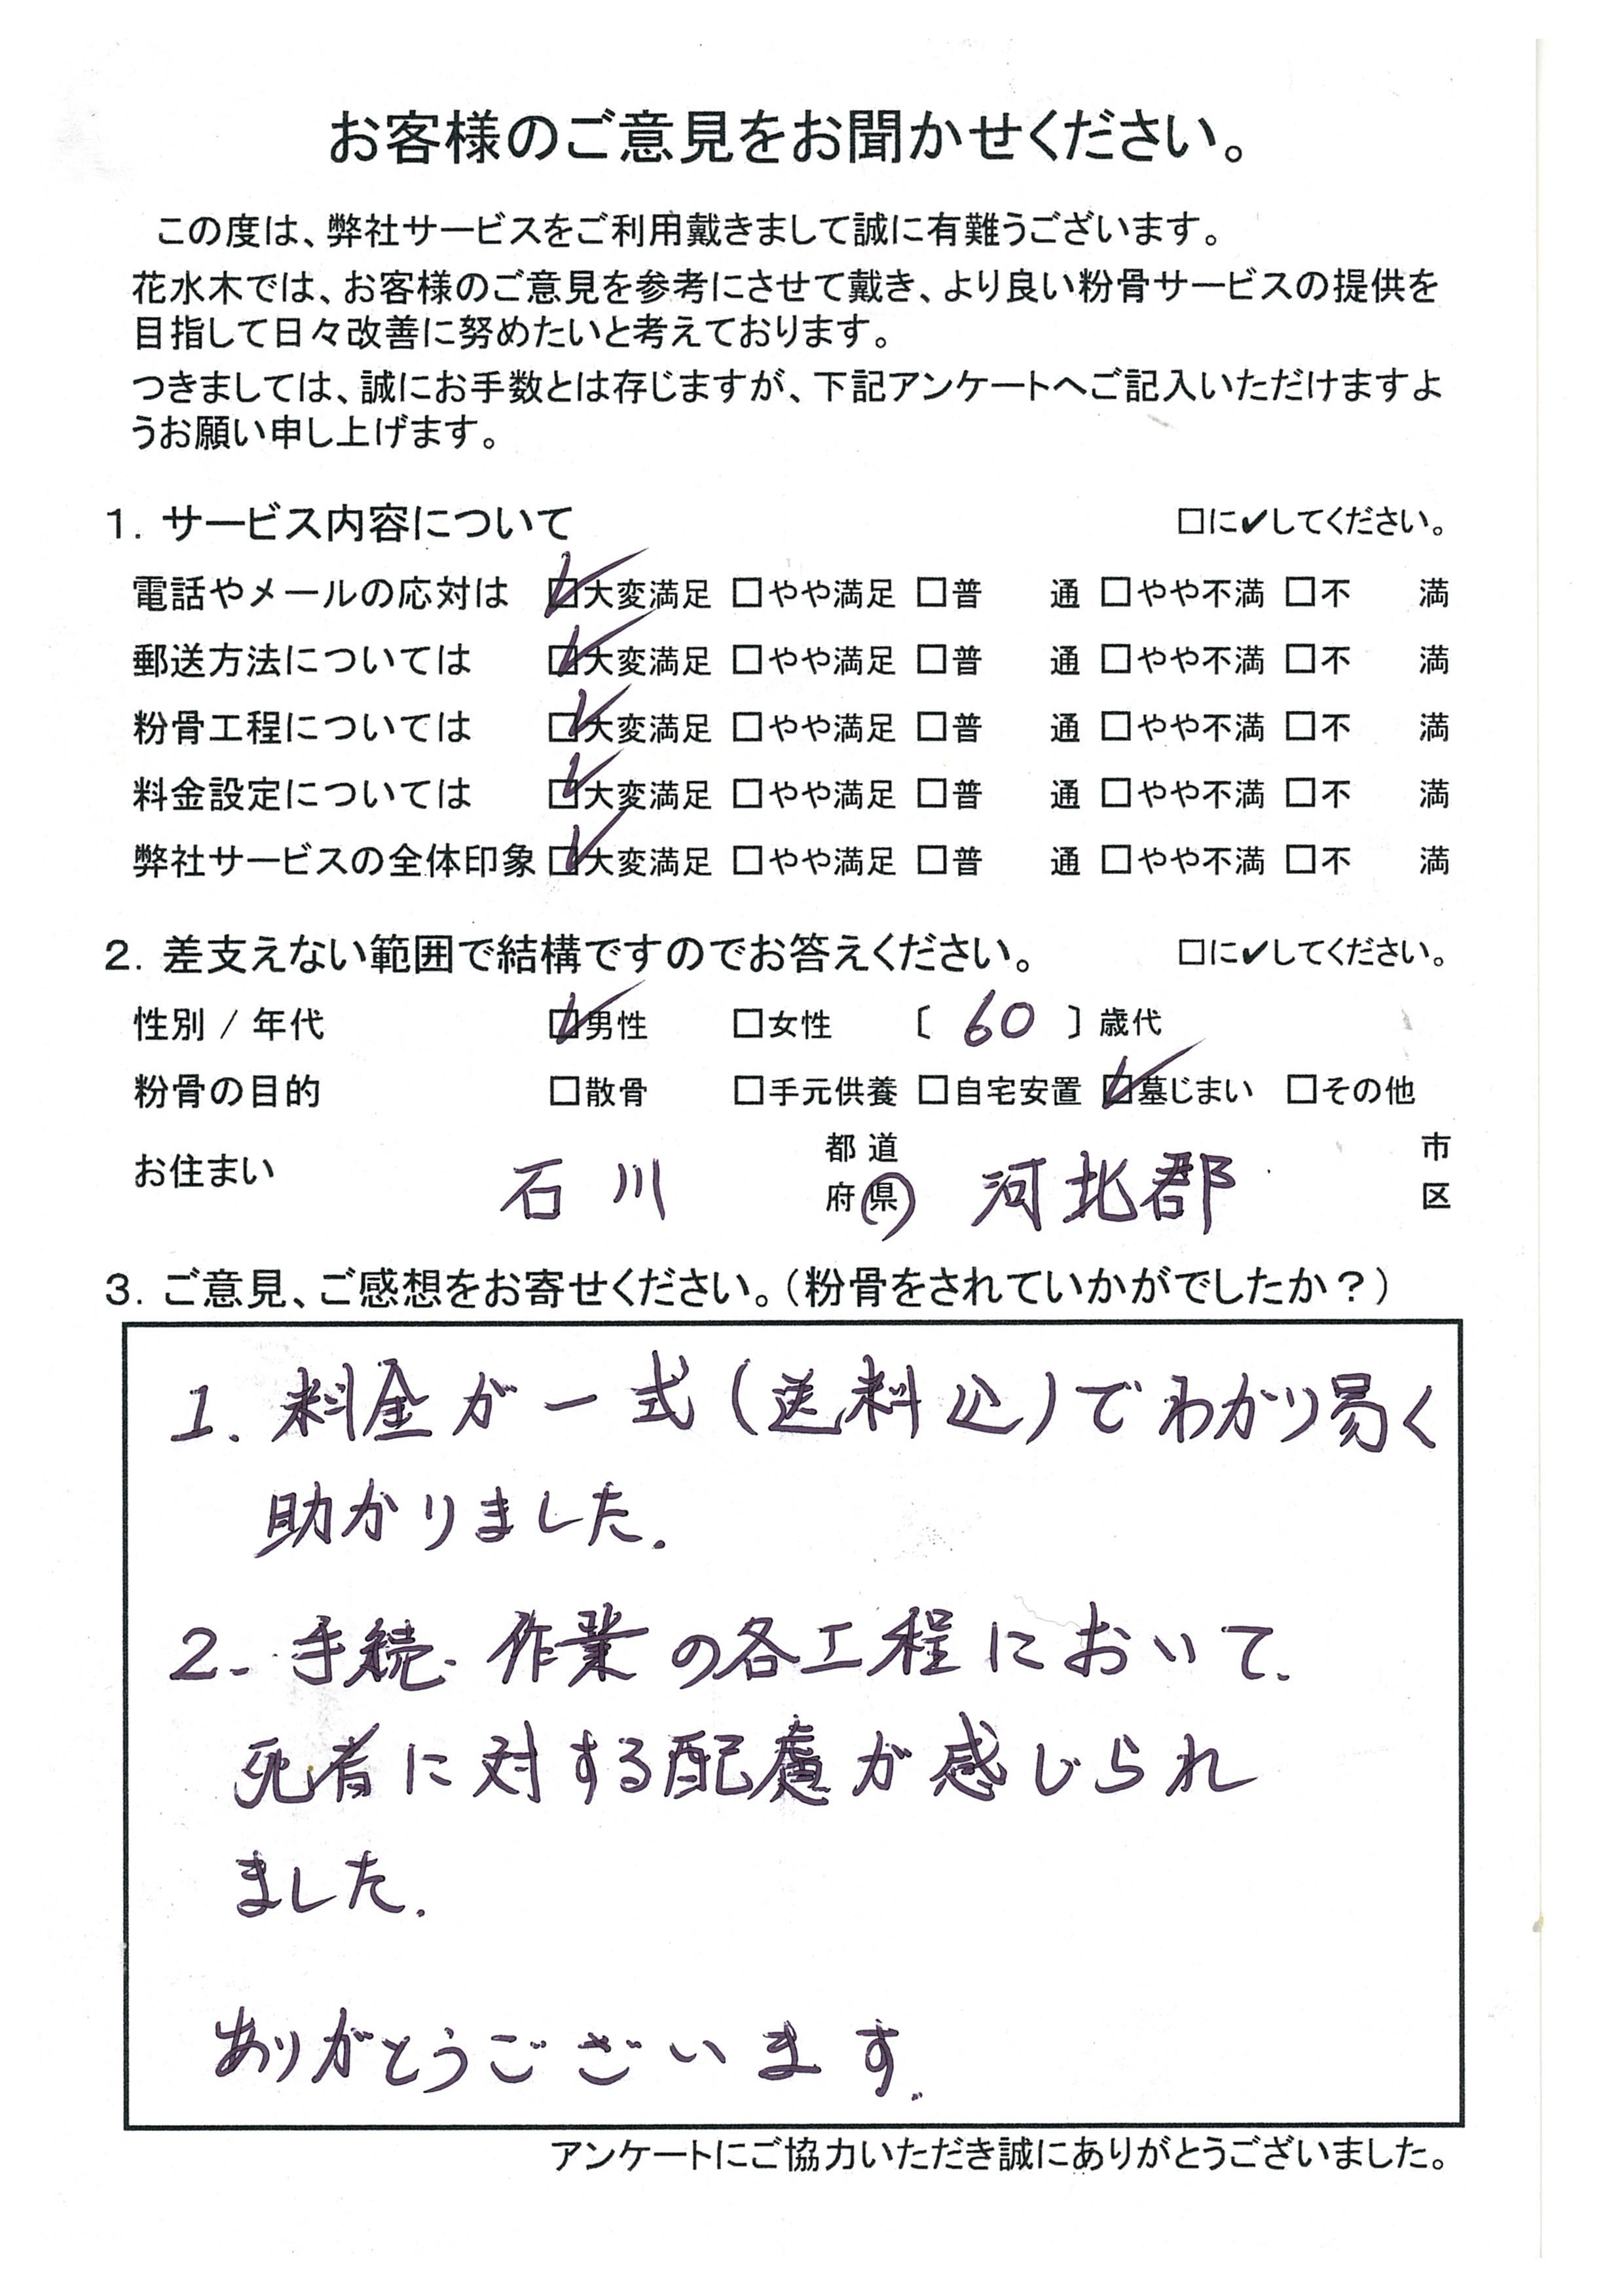 お客様のご意見をお聞かせください。
この度は、弊社サービスをご利用戴きまして誠に有難うございます。
花水木では、お客様のご意見を参考にさせて戴き、より良い粉骨サービスの提供を
目指して日々改善に努めたいと考えております。
つきましては、誠にお手数とは存じますが、下記アンケートへご記入いただけますよ
うお願い申し上げます。
1. サービス内容について □に✔してください。
電話やメールの応対は ☑大変満足 □やや満足 □普 通 □やや不満 □不 満
郵送方法については ☑大変満足 □やや満足 □普 通 □やや不満 □不 満
粉骨工程については ☑大変満足 □やや満足 □普 通 □やや不満 □不 満
料金設定については ☑大変満足 □やや満足 □普 通 □やや不満 □不 満
弊社サービスの全体印象 ☑大変満足 □やや満足 □普 通 □やや不満 □不 満
2. 差支えない範囲で結構ですのでお答えください。 □に✔してください。
性別 / 年代 ☑男性 □女性 〔 60 〕歳代
粉骨の目的 □散骨 □手元供養 □自宅安置 ☑墓じまい □その他
お住まい 石川 都道府県 河北郡 市区
3. ご意見、ご感想をお寄せください。（粉骨をされていかがでしたか？）
1. 料金が一式(送料込)でわかり易く
助かりました.
2. 手続・作業の各工程において、
死者に対する配慮が感じられ
ました.
ありがとうございます。
アンケートにご協力いただき誠にありがとうございました。